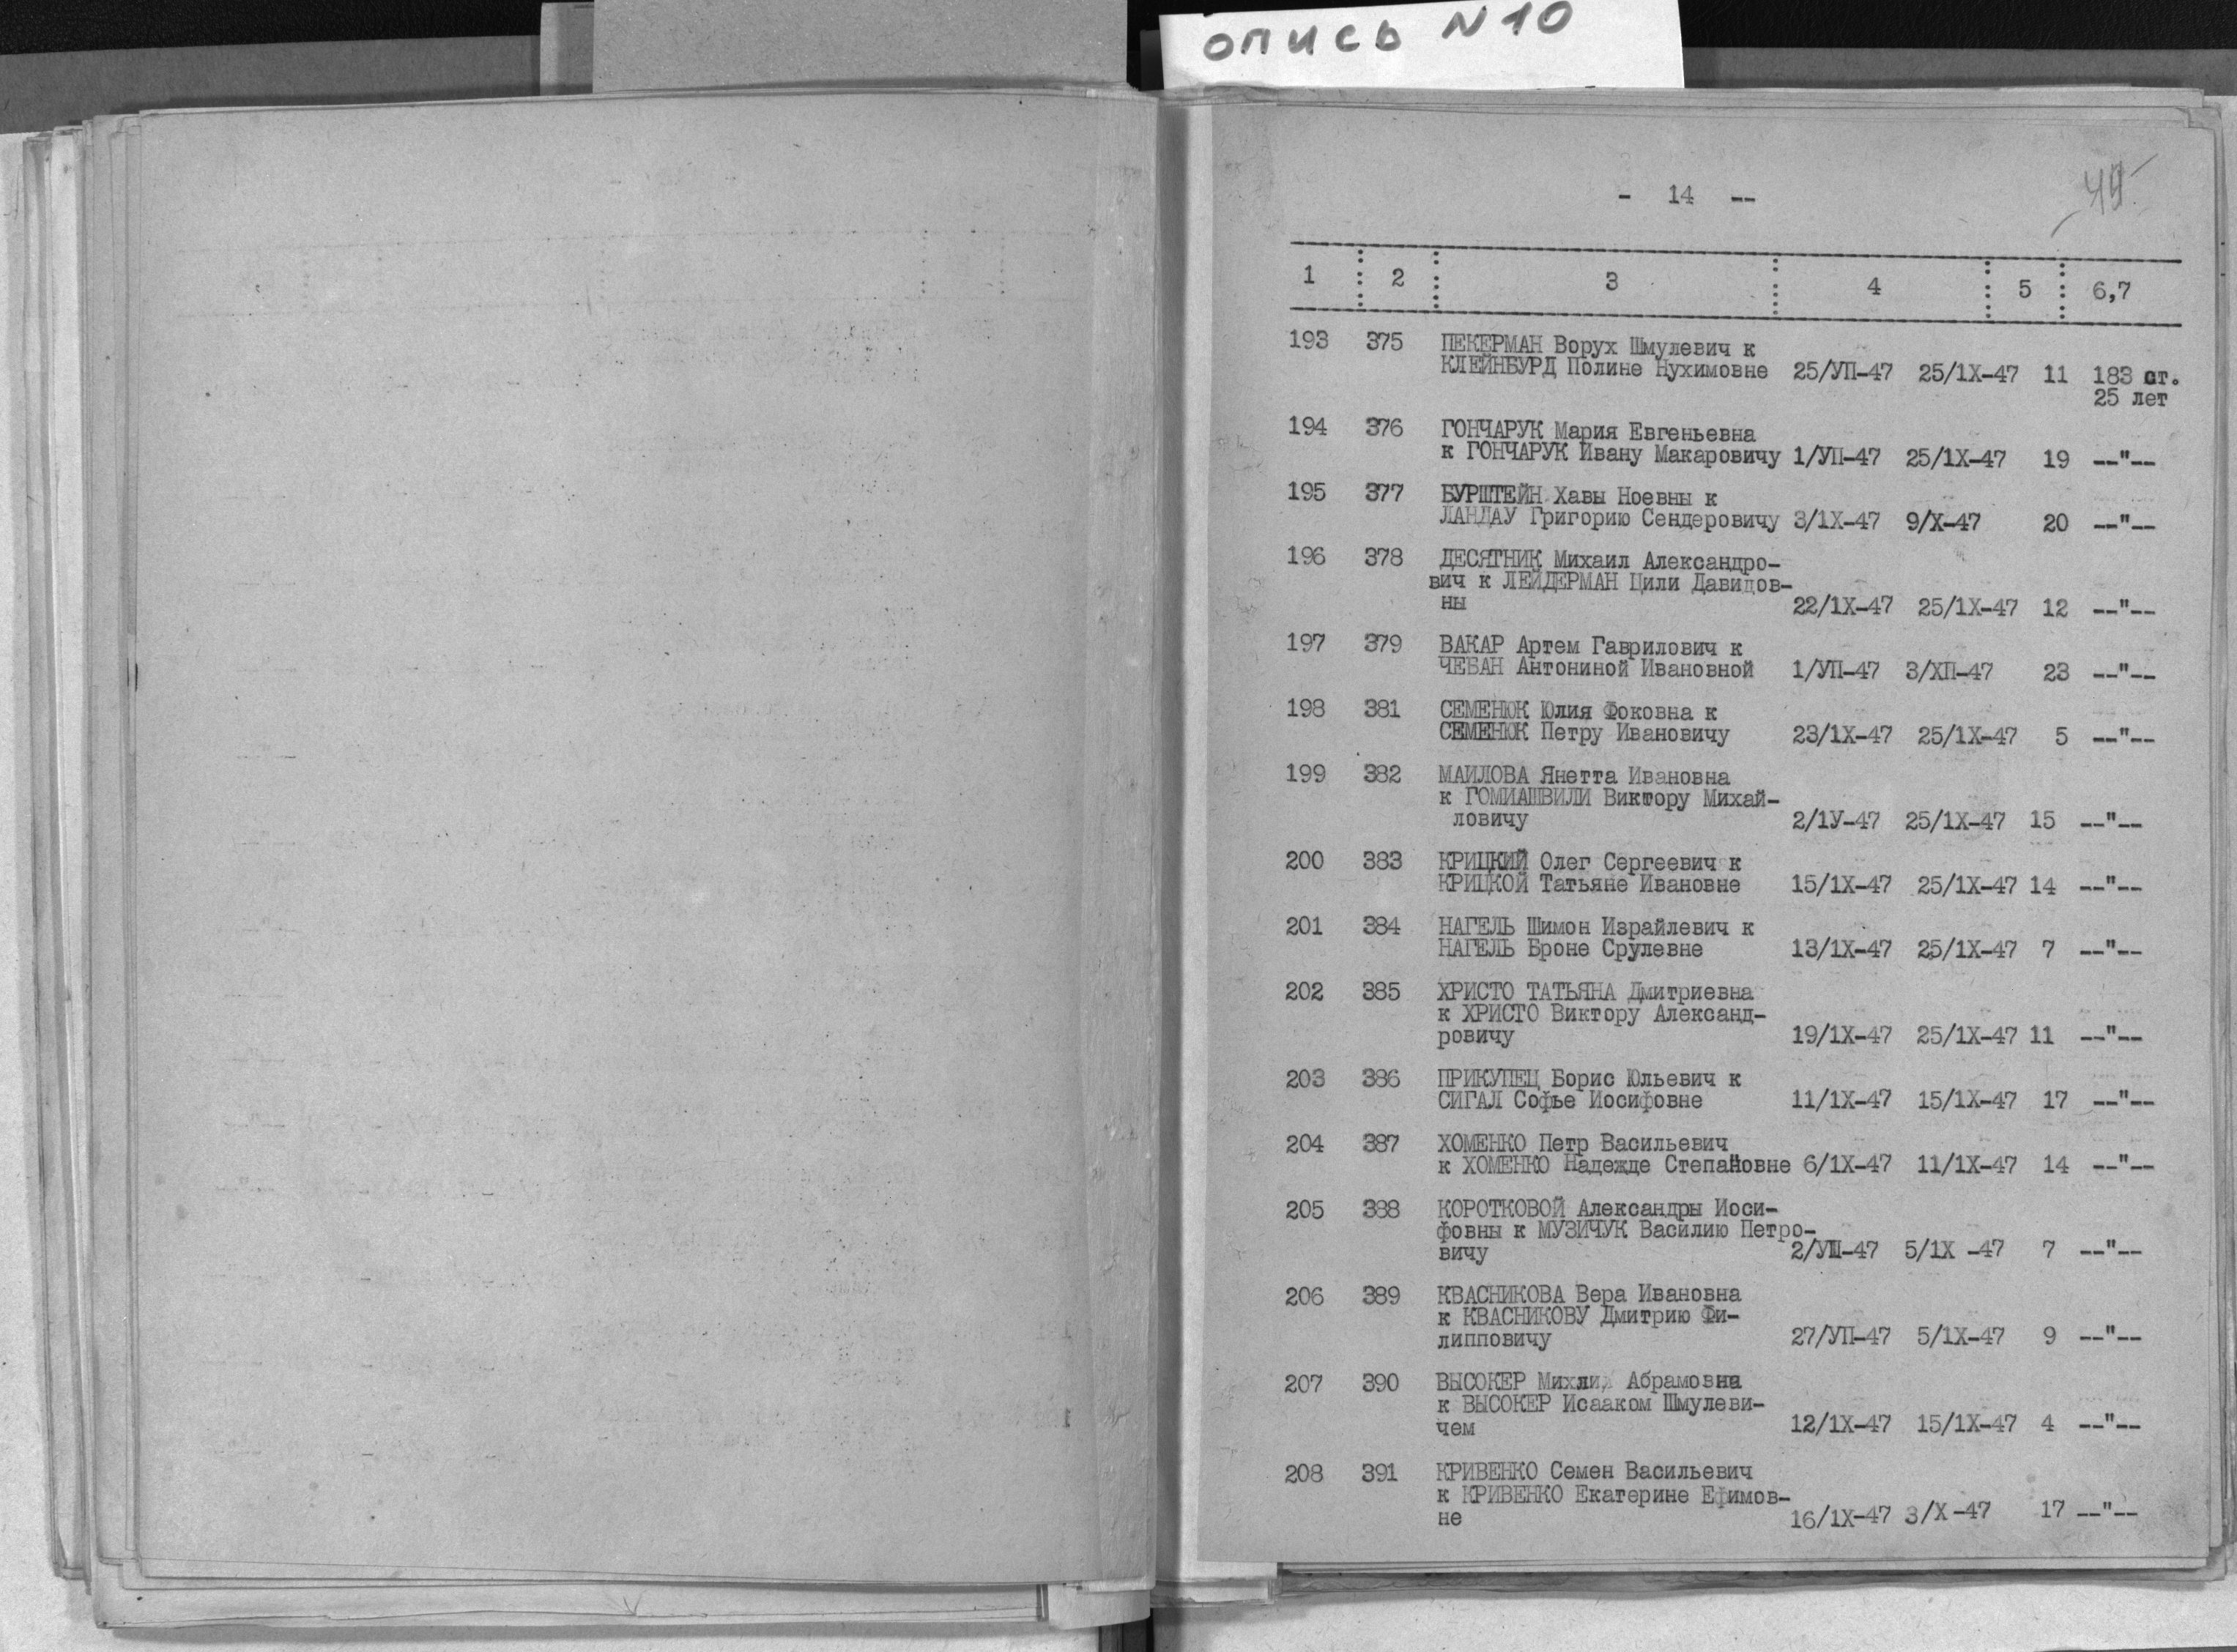 опись N10
- 14 --
49
1 2 3 4 5 6,7
193 375 ПЕКЕРМАН Ворух Шмулевич к
КЛЕЙНБУРД Полине Нухимовне 25/УП-47 25/1Х-47 11 183 ст.
25 лет
194 376 ГОНЧАРУК Мария Евгеньевна
к ГОНЧАРУК Ивану Макаровичу 1/УП-47 25/1Х-47 19 --"--
195 377 БУРШТЕЙН Хавы Ноевны к
ЛАНДАУ Григорию Сендеровичу 3/1Х-47 9/Х-47 20 --"--
196 378 ДЕСЯТНИК Михаил Александро-
вич к ЛЕЙДЕРМАН Цили Давидов-
ны 22/1Х-47 25/1Х-47 12 --"--
197 379 ВАКАР Артем Гаврилович к
ЧЕБАН Антониной Ивановной 1/УП-47 3/ХП-47 23 --"--
198 381 СЕМЕНЮК Юлия Фоковна к
СЕМЕНЮК Петру Ивановичу 23/1Х-47 25/1Х-47 5 --"--
199 382 МАИЛОВА Янетта Ивановна
к ГОМИАШВИЛИ Виктору Михай-
ловичу 2/1У-47 25/1Х-47 15 --"--
200 383 КРИЦКИЙ Олег Сергеевич к
КРИЦКОЙ Татьяне Ивановне 15/1Х-47 25/1Х-47 14 --"--
201 384 НАГЕЛЬ Шимон Израйлевич к
НАГЕЛЬ Броне Срулевне 13/1Х-47 25/1Х-47 7 --"--
202 385 ХРИСТО ТАТЬЯНА Дмитриевна
к ХРИСТО Виктору Александ-
ровичу 19/1Х-47 25/1Х-47 11 --"--
203 386 ПРИКУПЕЦ Борис Юльевич к
СИГАЛ Софье Иосифовне 11/1Х-47 15/1Х-47 17 --"--
204 387 ХОМЕНКО Петр Васильевич
к ХОМЕНКО Надежде Степановне 6/1Х-47 11/1Х-47 14 --"--
205 388 КОРОТКОВОЙ Александры Иоси-
фовны к МУЗИЧУК Василию Петро-
вичу 2/УШ-47 5/1Х -47 7 --"--
206 389 КВАСНИКОВА Вера Ивановна
к КВАСНИКОВУ Дмитрию Фи-
липповичу 27/УП-47 5/1Х-47 9 --"--
207 390 ВЫСОКЕР Абрамовна
к ВЫСОКЕР Исааком Шмулеви-
чем 12/1Х-47 15/1Х-47 4 --"--
208 391 КРИВЕНКО Семен Васильевич
к КРИВЕНКО Екатерине Ефимов-
не 16/1Х-47 3/Х-47 17 --"--